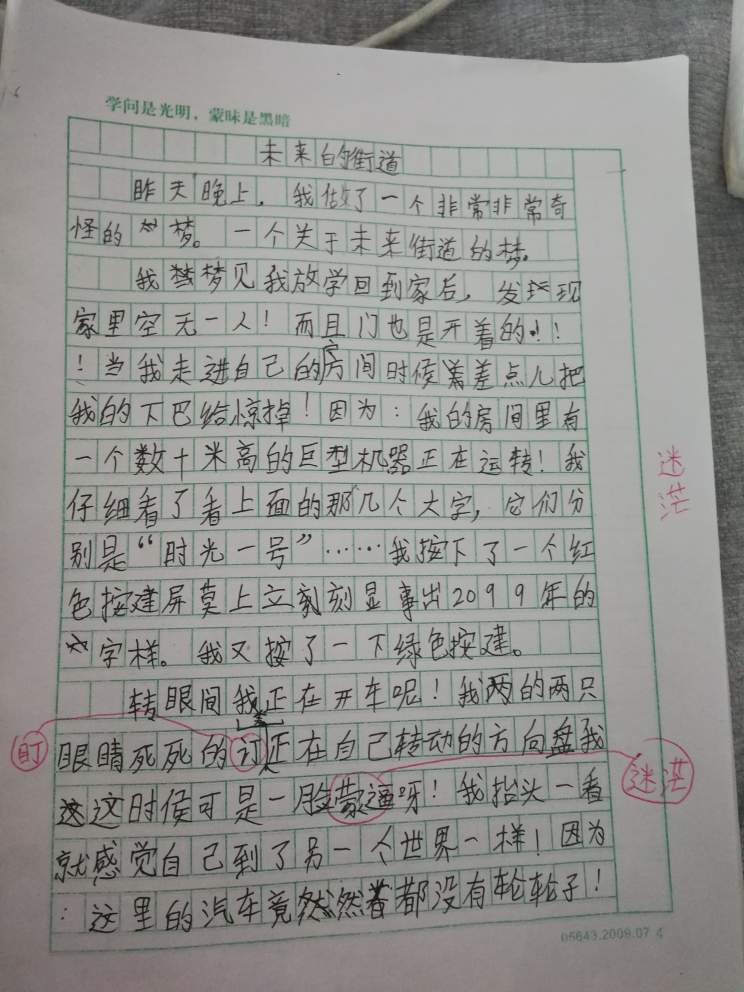 学问是光明，蒙昧是黑暗
未来的街道
昨天晚上，我做了一个非常非常奇
怪的梦。一个关于未来街道的梦。
我梦见我放学回到家后，发现
家里空无一人！而且门也是开着的！！
！当我走进自己的房间时候差点儿把
我的下巴给惊掉！因为：我的房间里有
一个数十米高的巨型机器正在运转！我
仔细看了看上面的那几个大字，它们分
别是“时光一号”……我按下了一个红
色按建屏莫上立刻显事出2099年的
字样。我又按了一下绿色按建。
转眼间我正在开车呢！我的两只
眼睛死死的订正在自己转动的方向盘我
这时侯可是一脸蒙逼呀！我抬头一看
就感觉自己到了另一个世界一样！因为
：这里的汽车竟然都没有轮子！
迷茫
盯
迷茫
05643.2009.07